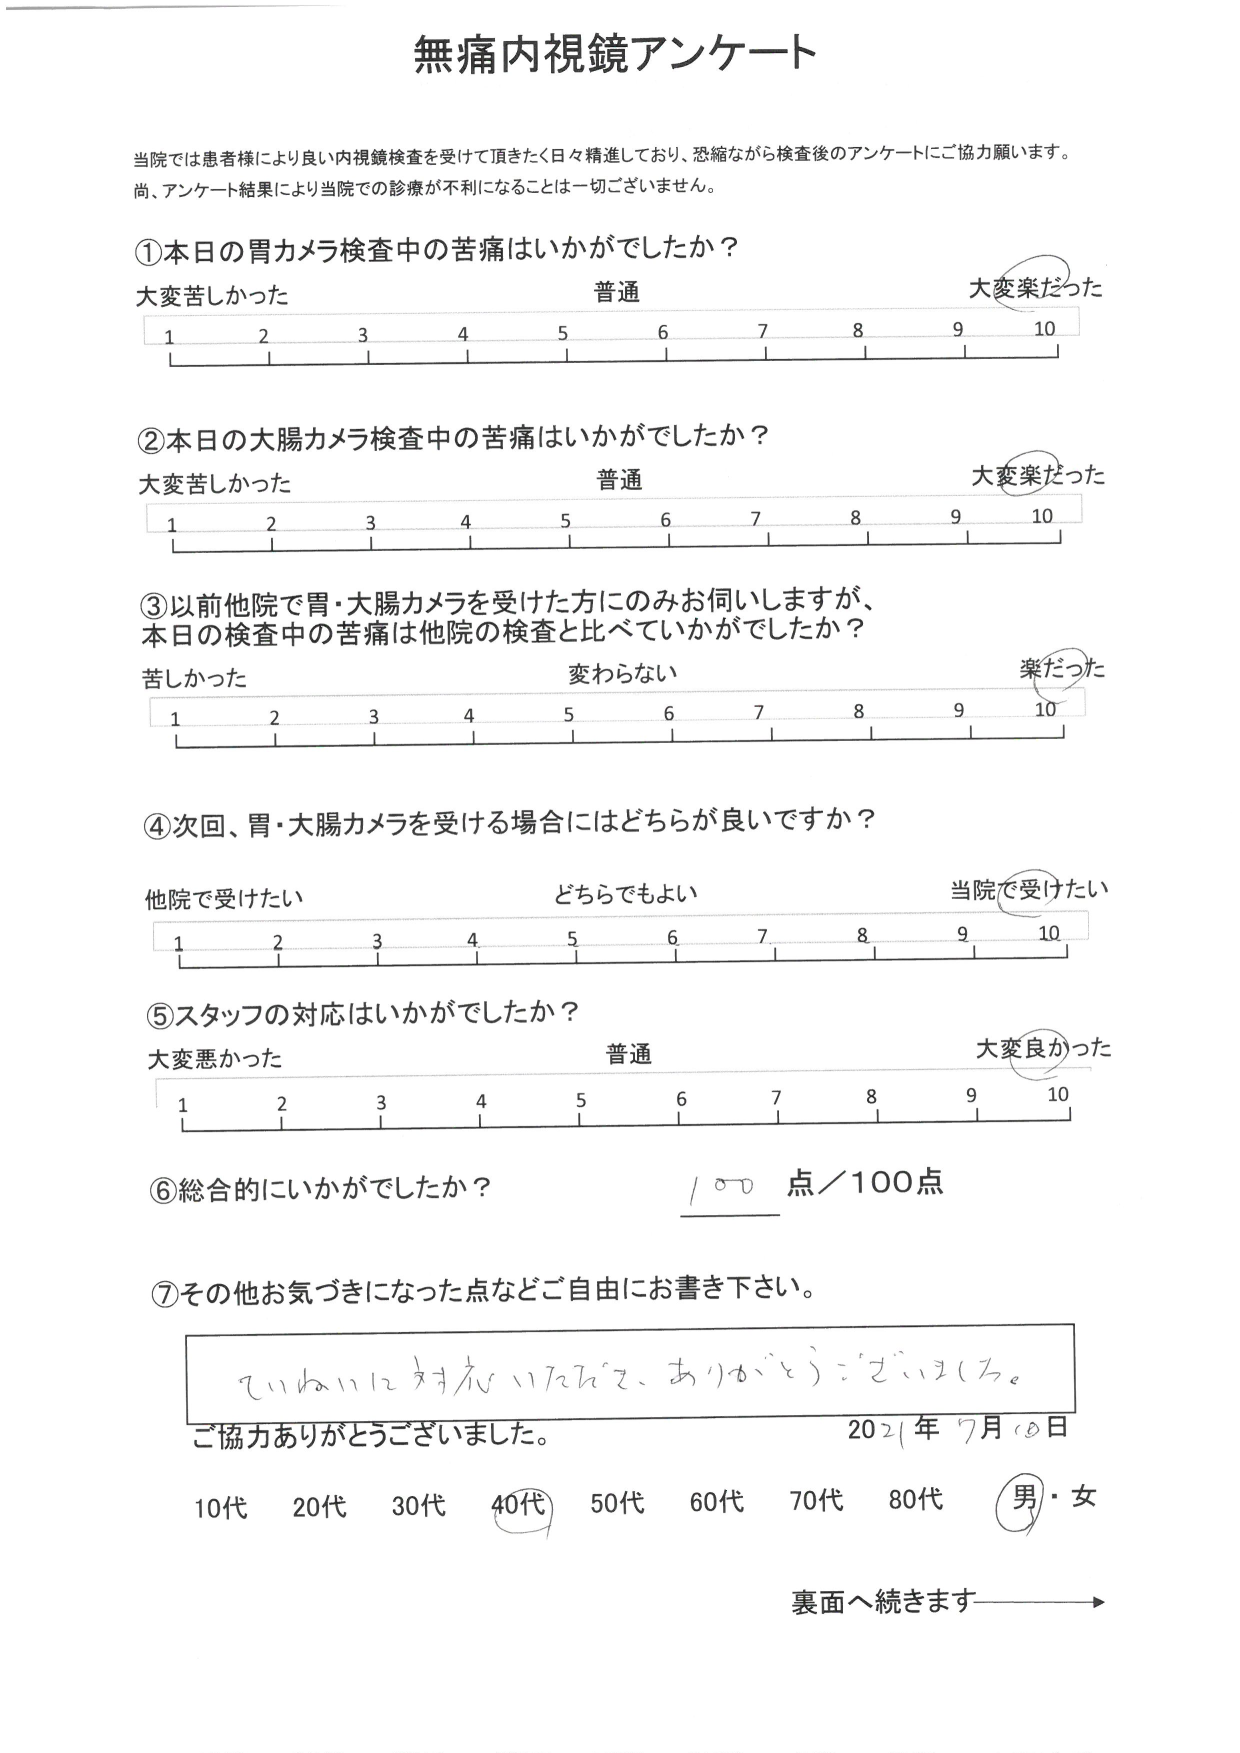 無痛内視鏡アンケート
当院では患者様により良い内視鏡検査を受けて頂きたく日々精進しており、恐縮ながら検査後のアンケートにご協力願います。
尚、アンケート結果により当院での診療が不利になることは一切ございません。
①本日の胃カメラ検査中の苦痛はいかがでしたか？
大変苦しかった 普通 大変楽だった
1 2 3 4 5 6 7 8 9 10
②本日の大腸カメラ検査中の苦痛はいかがでしたか？
大変苦しかった 普通 大変楽だった
1 2 3 4 5 6 7 8 9 10
③以前他院で胃・大腸カメラを受けた方にのみお伺いしますが、
本日の検査中の苦痛は他院の検査と比べていかがでしたか？
苦しかった 変わらない 楽だった
1 2 3 4 5 6 7 8 9 10
④次回、胃・大腸カメラを受ける場合にはどちらが良いですか？
他院で受けたい どちらでもよい 当院で受けたい
1 2 3 4 5 6 7 8 9 10
⑤スタッフの対応はいかがでしたか？
大変悪かった 普通 大変良かった
1 2 3 4 5 6 7 8 9 10
⑥総合的にいかがでしたか？ 100 点／100点
⑦その他お気づきになった点などご自由にお書き下さい。
ていねいに対応いただき、ありがとうございました。
ご協力ありがとうございました。 2021年 7月 10日
10代 20代 30代 40代 50代 60代 70代 80代 男・女
裏面へ続きます